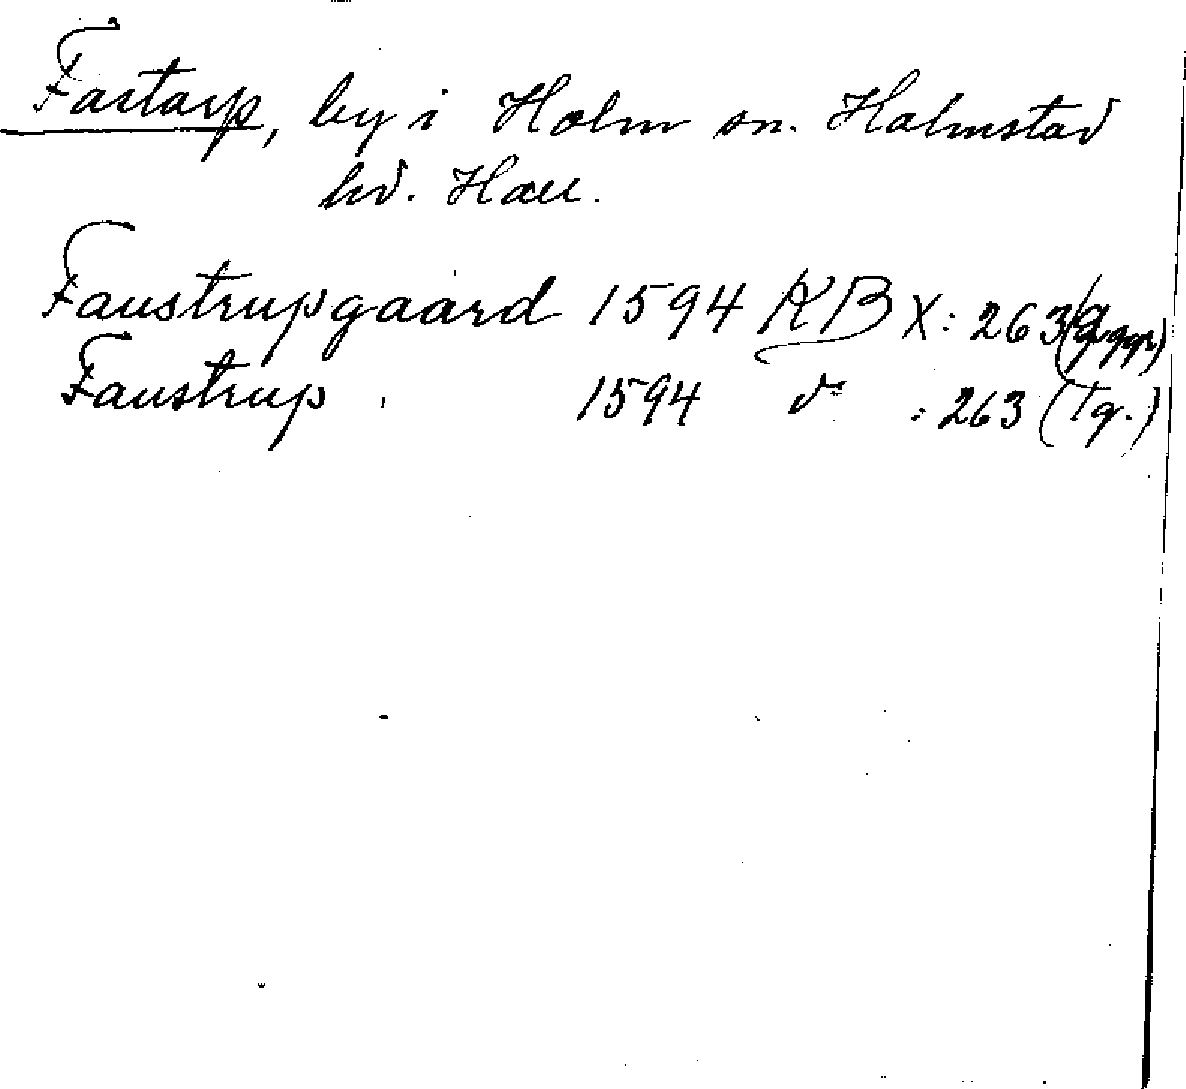 Fastarp, by i Holm sn. Halmstad
hd. Hall.
Faustrupgaard 1594 KB X: 263
Faustrup 1594 do : 263 (Tg.)